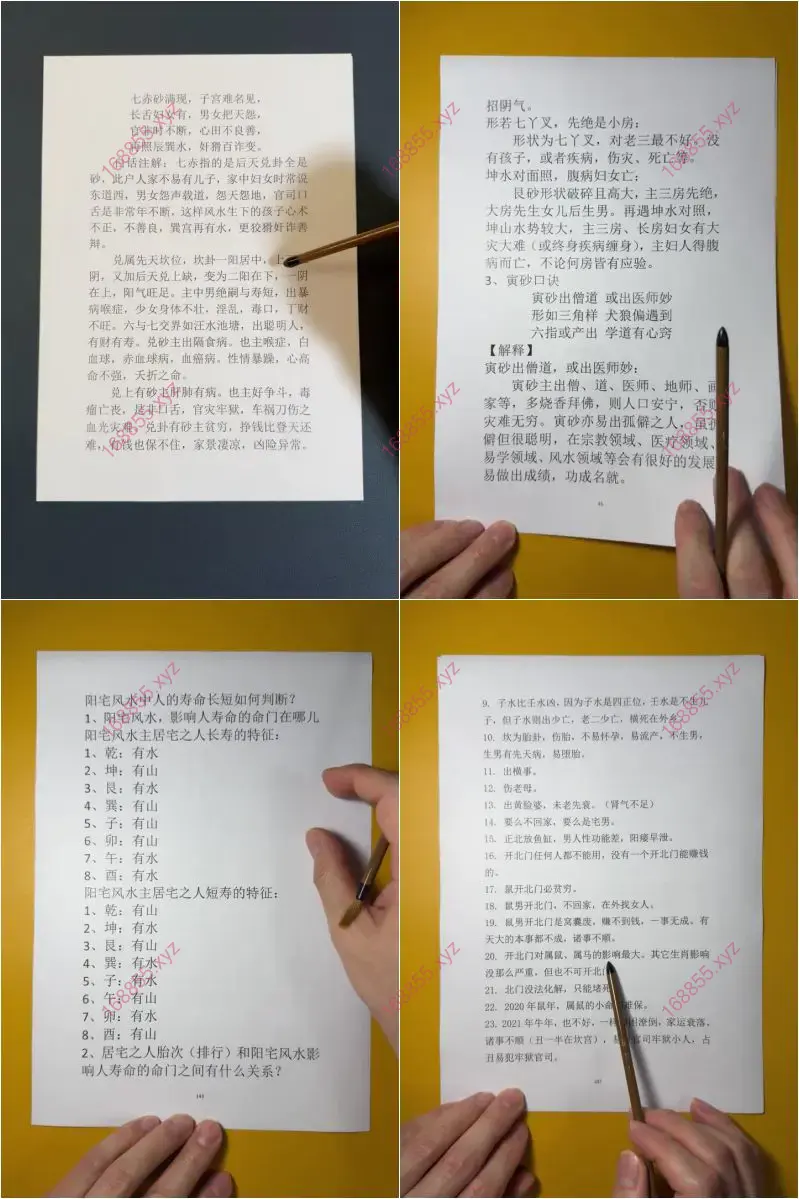 七赤砂满现，子宫难名见，
长舌妇女有，男女把天怨，
官非时不断，心田不良善，
再照辰巽水，奸猾百诈变。
括注解：七赤指的是后天兑卦全是
砂，此户人家不易有儿子，家中妇女时常说
东道西，男女怨声载道，怨天怨地，官司口
舌是非常年不断，这样风水生下的孩子心术
不正，不善良，巽宫再有水，更狡猾奸诈善
辩。
兑属先天坎位，坎卦一阳居中，上
阴，又加后天兑上缺，变为二阳在下，一阴
在上，阳气旺足。主中男绝嗣与寿短，出暴
病喉症，少女身体不壮，淫乱，毒口，丁财
不旺。六与七交界如汪水池塘，出聪明人，
有财有寿。兑砂主出隔食病。也主喉症，白
血球，赤血球病，血癌病。性情暴躁，心高
命不强，夭折之命。
兑上有砂主肝肺有病。也主好争斗，毒
瘤亡丧，是非口舌，官灾牢狱，车祸刀伤之
血光灾难。兑卦有砂主贫穷，挣钱比登天还
难，有钱也保不住，家景凄凉，凶险异常。
招阴气。
形若七丫叉，先绝是小房；
形状为七丫叉，对老三最不好，没
有孩子，或者疾病，伤灾、死亡等。
坤水对面照，腹病妇女亡；
艮砂形状破碎且高大，主三房先绝，
大房先生女儿后生男。再遇坤水对照，
坤山水势较大，主三房、长房妇女有大
灾大难（或终身疾病缠身），主妇人得腹
病而亡，不论何房皆有应验。
3、寅砂口诀
寅砂出僧道 或出医师妙
形如三角样 犬狼偏遇到
六指或产出 学道有心窍
【解释】
寅砂出僧道，或出医师妙：
寅砂主出僧、道、医师、地师、画
家等，多烧香拜佛，则人口安宁，否
灾难无穷。寅砂亦易出孤僻之人，虽
僻但很聪明，在宗教领域、医疗领域、
易学领域、风水领域等会有很好的发展
易做出成绩，功成名就。
阳宅风水中人的寿命长短如何判断？
1、阳宅风水，影响人寿命的命门在哪儿
阳宅风水主居宅之人长寿的特征：
1、乾：有水
2、坤：有山
3、艮：有水
4、巽：有山
5、子：有山
6、卯：有山
7、午：有水
8、酉：有水
阳宅风水主居宅之人短寿的特征：
1、乾：有山
2、坤：有水
3、艮：有山
4、巽：有水
5、子：有水
6、午：有山
7、卯：有水
8、酉：有山
2、居宅之人胎次（排行）和阳宅风水影
响人寿命的命门之间有什么关系？
9. 子水比壬水凶，因为子水是四正位，壬水是不生儿
子，但子水则出少亡，老二少亡，横死在外乡。
10. 坎为胎卦，伤胎，不易怀孕，易流产，不生男，
生男有先天病，易堕胎。
11. 出横事。
12. 伤老母。
13. 出黄脸婆、未老先衰。（肾气不足）
14. 要么不回家，要么是宅男。
15. 正北放鱼缸，男人性功能差，阳痿早泄。
16. 开北门任何人都不能用，没有一个开北门能赚钱
的。
17. 鼠开北门必贫穷。
18. 鼠男开北门，不回家，在外找女人。
19. 鼠男开北门是窝囊废，赚不到钱，一事无成。有
天大的本事都不成，诸事不顺。
20. 开北门对属鼠、属马的影响最大。其它生肖影响
没那么严重，但也不可开北
21. 北门没法化解，只能堵死
22. 2020年鼠年，属鼠的小命 难保。
23. 2021年牛年，也不好，一样 潦倒，家运衰落，
诸事不顺（丑一半在坎宫），易 官司牢狱小人，占
丑易犯牢狱官司。
168855.xyz
168855.xyz
168855.xyz
168855.xyz
168855.xyz
168855.xyz
168855.xyz
168855.xyz